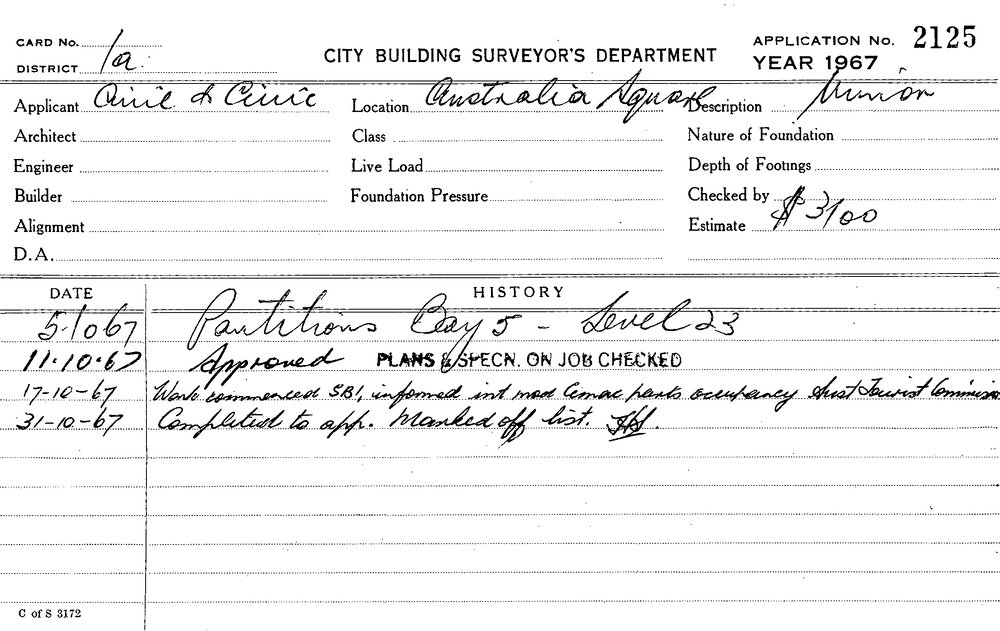 CARD No.
DISTRICT 1a.
CITY BUILDING SURVEYOR'S DEPARTMENT
APPLICATION No. 2125
YEAR 1967
Applicant Civil & Civic Location Australia Square Description Minor
Architect Class Nature of Foundation
Engineer Live Load Depth of Footings
Builder Foundation Pressure Checked by
Alignment Estimate $ 3100
D.A.
DATE HISTORY
5.10 67 Partitions Bay 5 - Level 23
11.10.67 Approved PLANS & SPECN. ON JOB CHECKED
17-10-67 Work commenced SB1, informed int parts occupancy Aust Tourist Commission
31-10-67 Completed to app. Marked off list.
C of S 3172